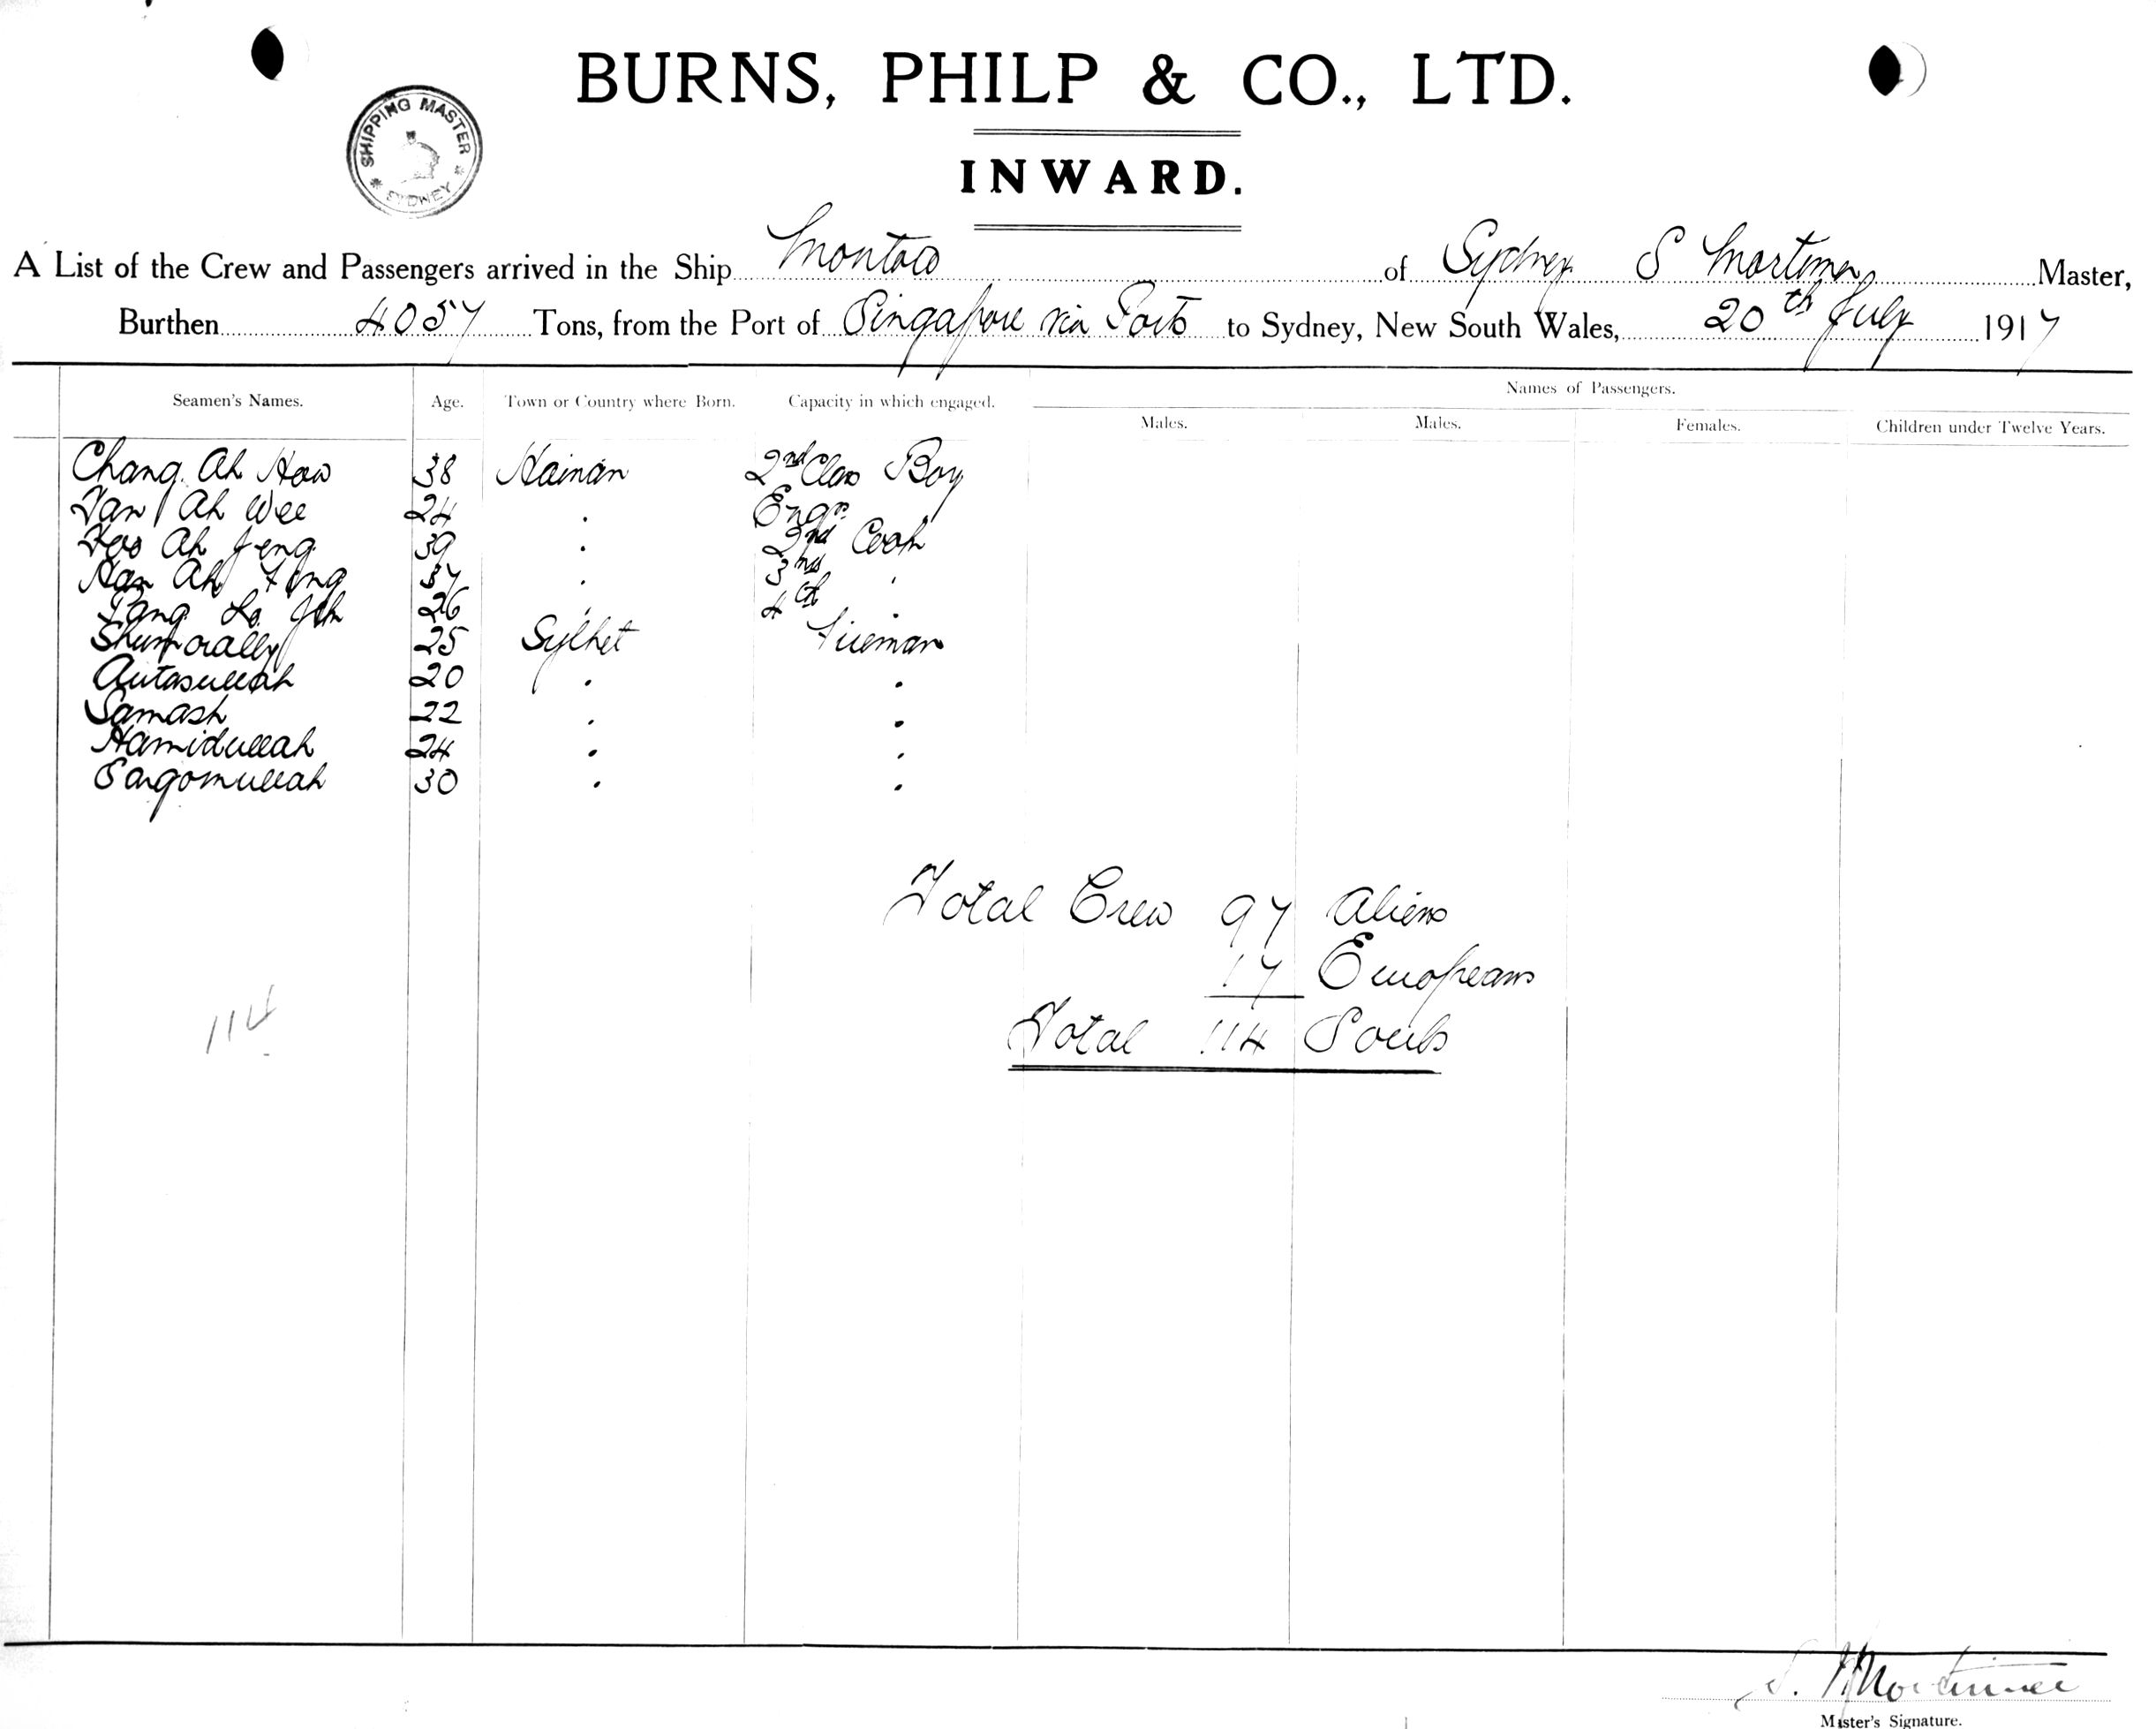 BURNS, PHILP & CO., LTD.
SHIPPING MASTER
SYDNEY
INWARD.
A List of the Crew and Passengers arrived in the Ship Montoro of Sydney S Mortimer Master,
Burthen 4057 Tons, from the Port of Singapore via Ports to Sydney, New South Wales, 20th July 1917
Names of Passengers.
Seamen's Names. Age. Town or Country where Born. Capacity in which engaged. Males. Males. Females. Children under Twelve Years.
Chang Ah How 38 Hainan 2nd Class Boy
Tan Ah Wee 24 " Engrs
Foo Ah Jeng 39 " 2nd Cook
Han Ah Fong 37 " 3rd "
26 " 4th "
25 Sylhet Fireman
Autasullah 20 " "
Samash 22 " "
Hamidullah 24 " "
Sargomullah 30 " "
Total Crew 97 Aliens
17 Europeans
Total 114 Souls
114
S. Mortimer
Master's Signature.